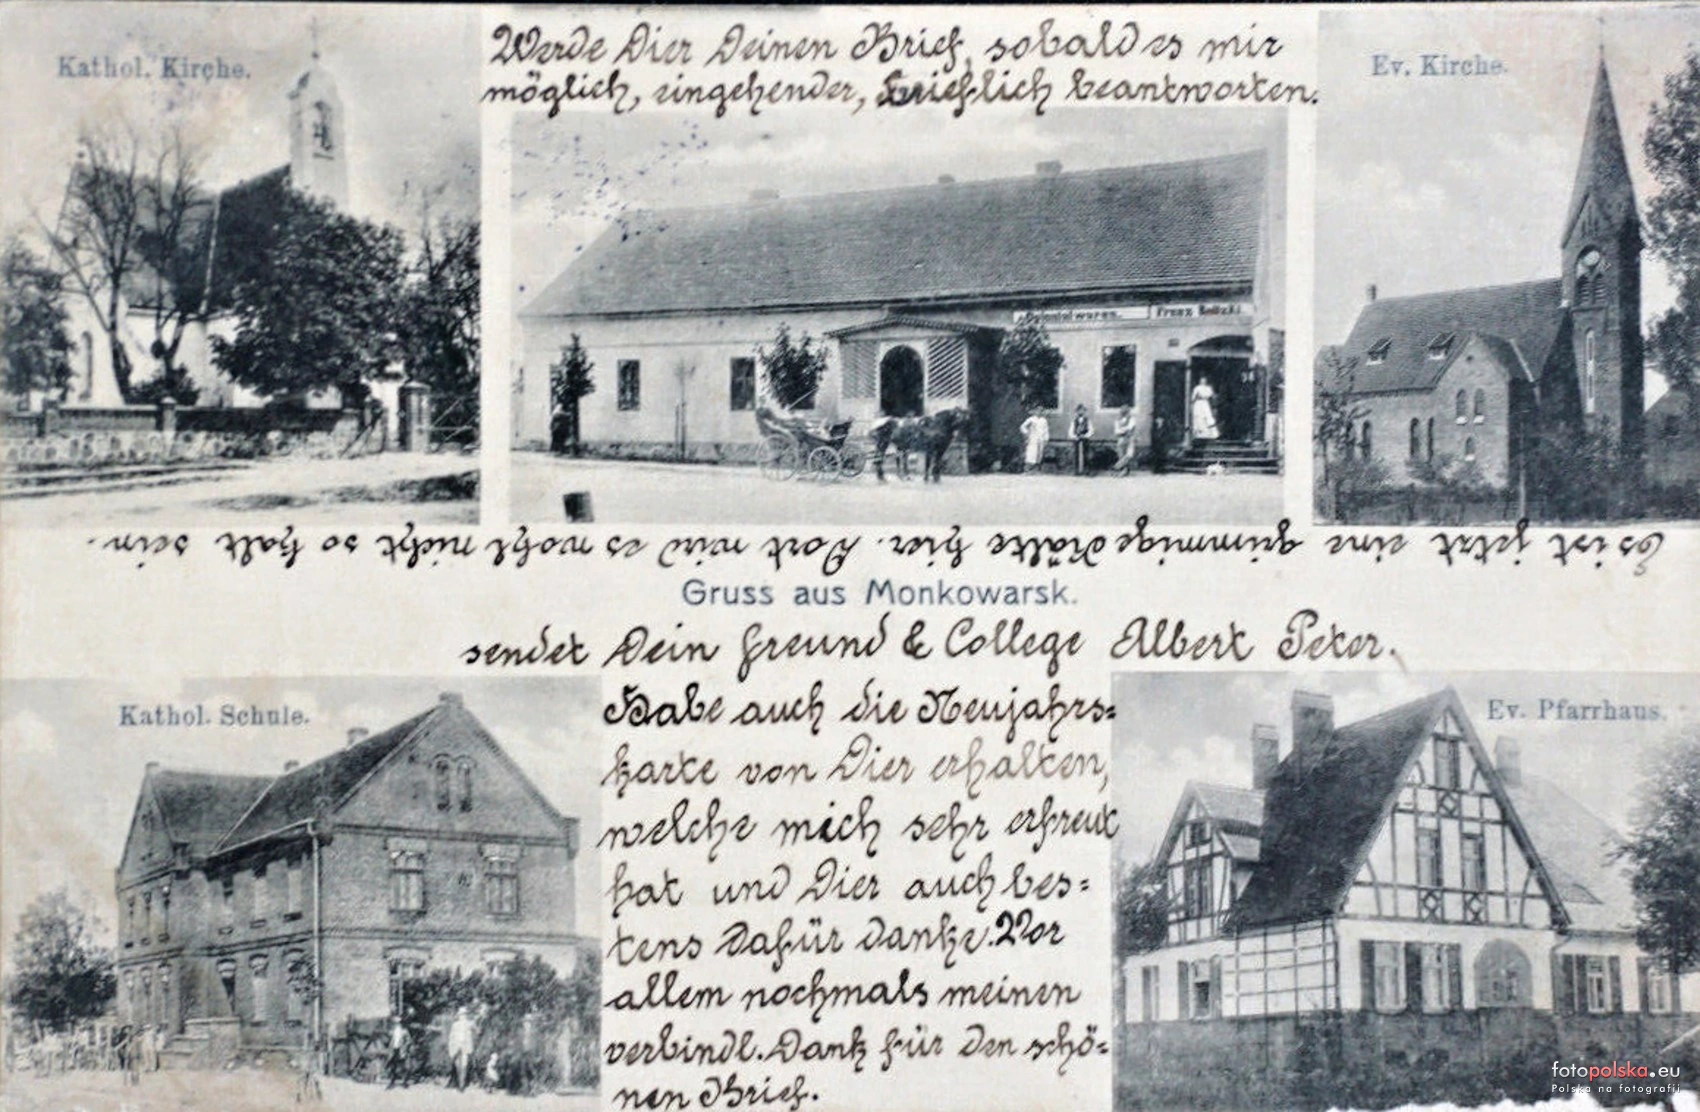 Werde Dier Deinen Brief, sobald es mir
möglich, eingehender, brieflich beantworten.
Kathol. Kirche.
Ev. Kirche.
Colonialwaren. Franz
Es ist jetzt eine grimmige Kälte hier. Dort wird es wohl nicht so kalt sein.
Gruss aus Monkowarsk.
sendet Dein Freund & College Albert Peter.
Kathol. Schule.
Ev. Pfarrhaus.
Habe auch die Neujahrs=
karte von Dier erhalten,
welche mich sehr erfreut
hat und Dier auch bes=
tens dafür danke. Vor
allem nochmals meinen
verbindl. Dank für den schö=
nen Brief.
fotopolska.eu
Polska na fotografii